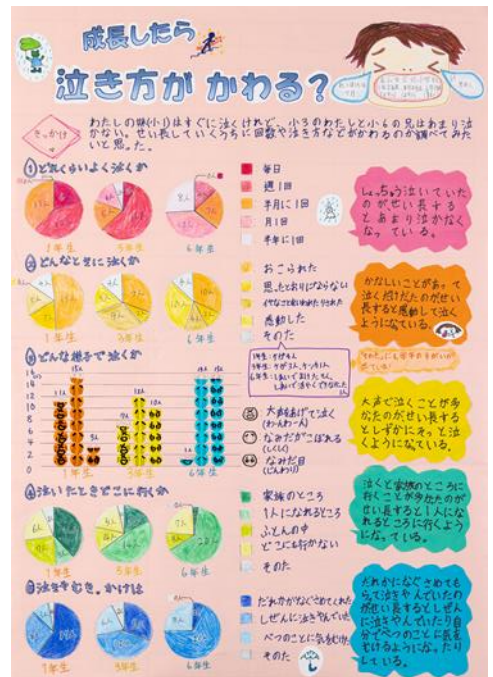 成長したら
泣き方が かわる?
きっかけ
わたしの妹(小1)はすぐに泣くけれど、小3のわたしと小6の兄はあまり泣
かない。せい長していくうちに回数や泣き方などがかわるのか調べてみた
いと思った。
①どれくらいよく泣くか
1年生
3年生
6年生
毎日
週1回
半月に1回
月1回
半年に1回
しょっちゅう泣いていた
のがせい長する
とあまり泣かなく
なっている。
②どんなときに泣くか
1年生
3年生
6年生
おこられた
思ったとおりにならない
感動した
そのた
かなしいことがあって
泣くだけだったのがせい
長すると感動して泣く
ようになっている。
③どんな様子で泣くか
16
14
12
10
8
6
4
2
0
1年生
3年生
6年生
大声をあげて泣く
(わーんわーん)
なみだがこぼれる
(しくしく)
なみだ目
(じんわり)
大声で泣くことが多
かったのがせい長する
としずかにそっと泣
くようになっている。
④泣いたときどこに行くか
1年生
3年生
6年生
家族のところ
1人になれるところ
ふとんの中
どこにも行かない
そのた
泣くと家族のところに
行くことが多かったのが
せい長すると1人にな
れるところに行くよう
になっている。
⑤泣きやむきっかけは
1年生
3年生
6年生
だれかがなぐさめてくれた
しぜんに泣きやんでいた
べつのことに気をむけた
そのた
だれかになぐさめても
らって泣きやんでいたの
がせい長するとしぜん
に泣きやんでいたり自
分でべつのことに気を
むけるようになったり
している。